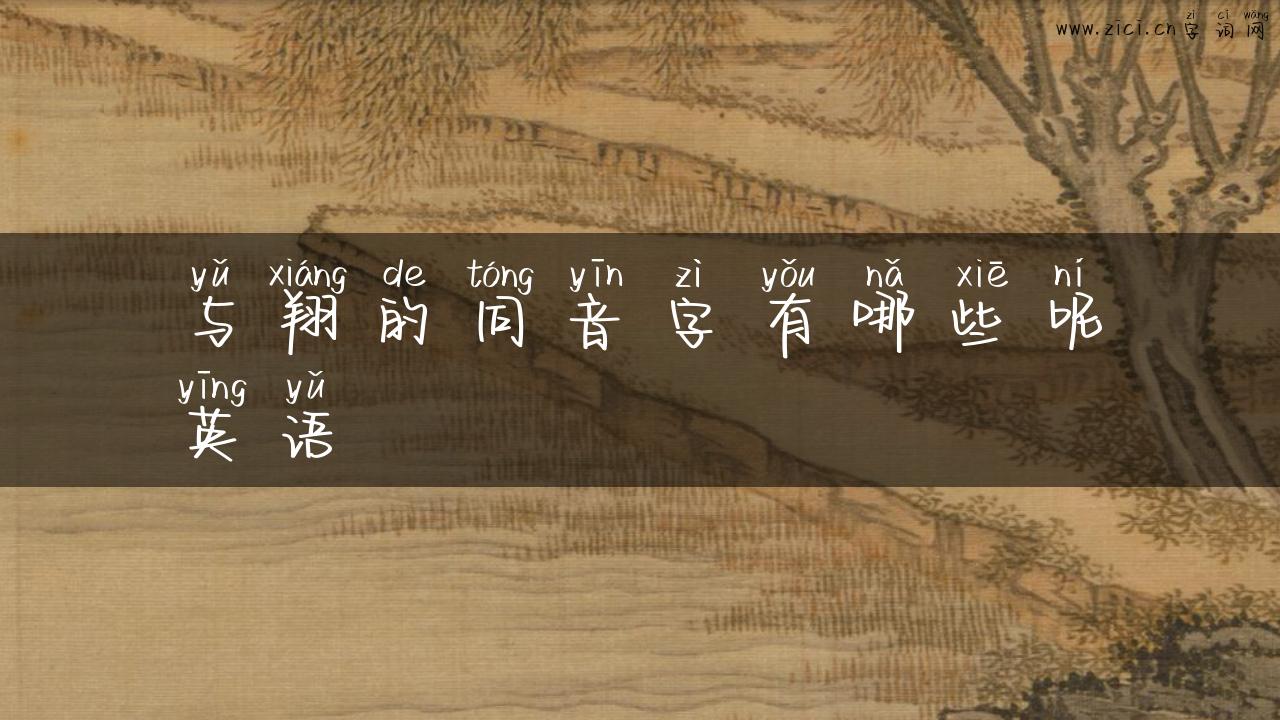 zì cí wǎng
www.zici.cn字词网
yǔ xiáng de tóng yīn zì yǒu nǎ xiē ní
与翔的同音字有哪些呢
yīng yǔ
英语